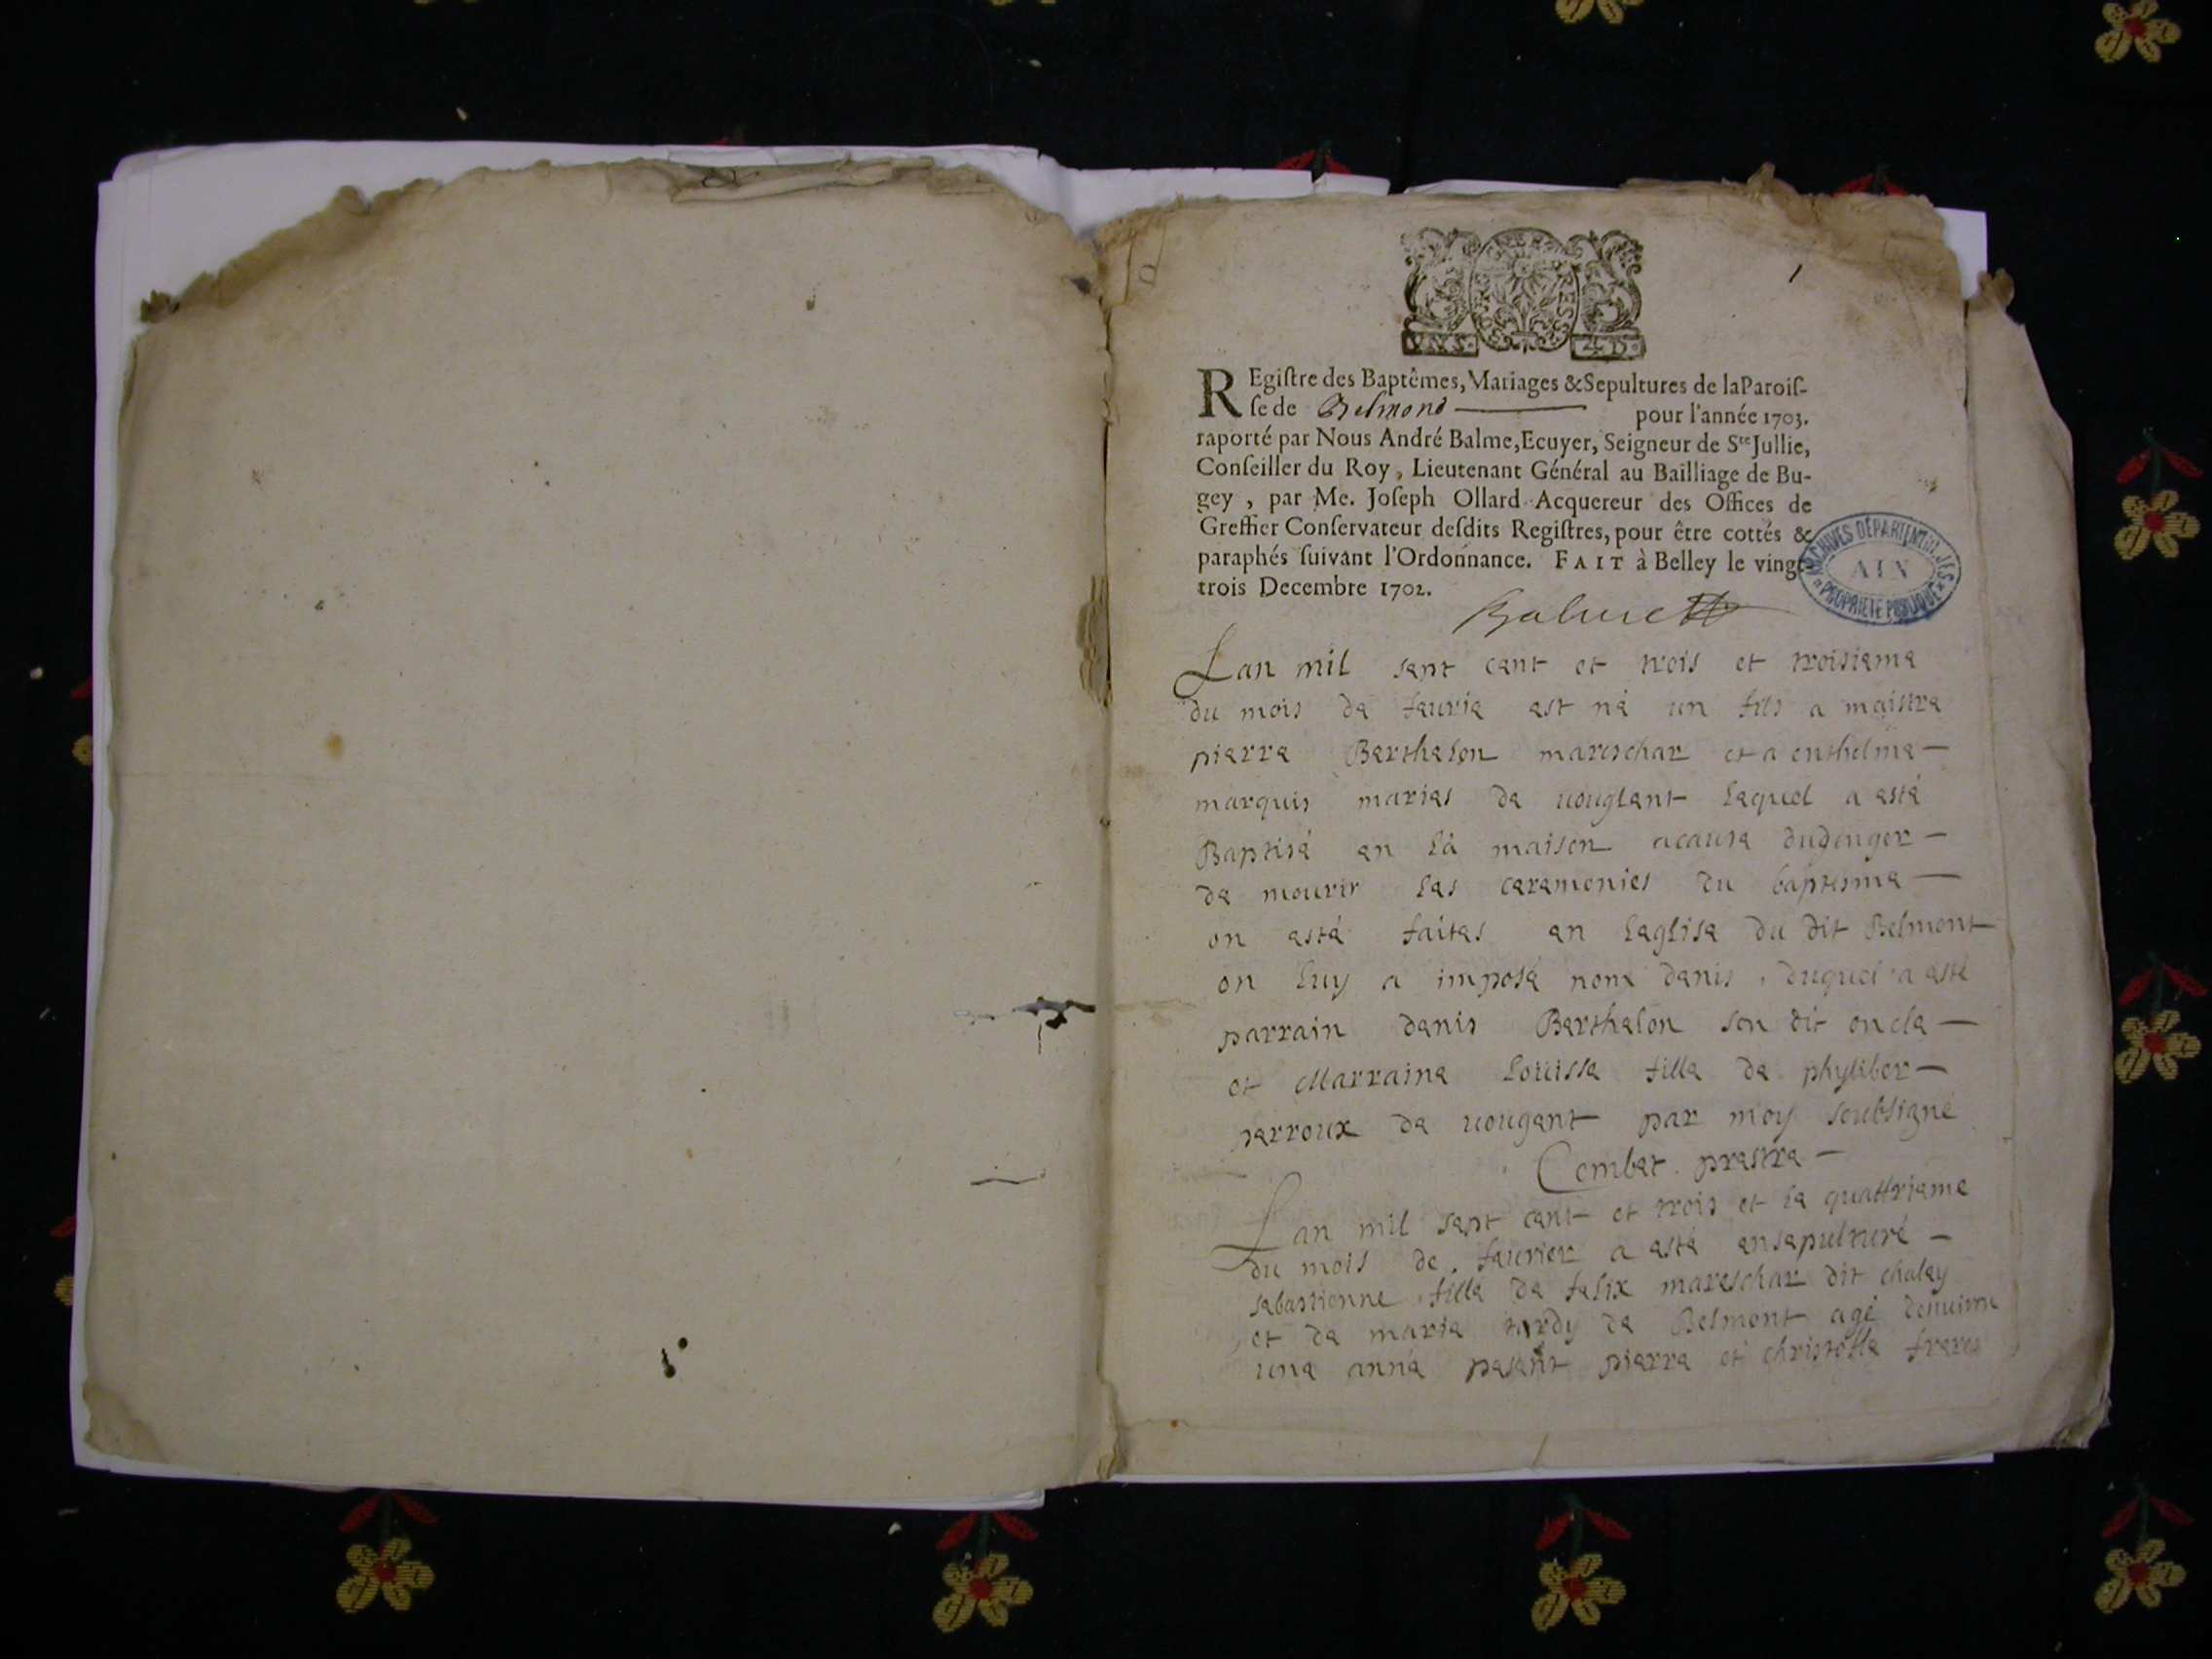 1
VN S. 4 D.
REgiſtre des Baptêmes, Mariages & Sepultures de la Paroiſ-
ſe de Belmond pour l'année 1703.
raporté par Nous André Balme, Ecuyer, Seigneur de Ste Jullie,
Conſeiller du Roy, Lieutenant Général au Bailliage de Bu-
gey, par Me. Joſeph Ollard Acquereur des Offices de
Greffier Conſervateur deſdits Regiſtres, pour être cottés &
paraphés ſuivant l'Ordonnance. FAIT à Belley le vingt-
trois Decembre 1702.
ARCHIVES DÉPARTEMENTALES
AIN
PROPRIÉTÉ PUBLIQUE
Lan mil sept cent et trois et troisieme
du mois de feurie est né un fils a maistre
pierre Berthelon mareschar et a enthelme
marquis maries de uouglent lequel a esté
Baptisé en la maison acause dudenger
de mourir les ceremonies du baptesme
on esté faites en leglise du dit Belmont
on luy a imposé nom denis duquel a esté
parrain denis Berthelon son dit oncle
et Marraine Louisse fille de phyleber
perroux de uougent par moy soubsigne
Combet prestre
Lan mil sept cent et trois et le quattrieme
du mois de feurier a esté ensepulturé
sebastienne fille de felix mareschar dit chaley
et de marie tardy de Belmont agé denuiron
une anné pesent pierre et christofle freres